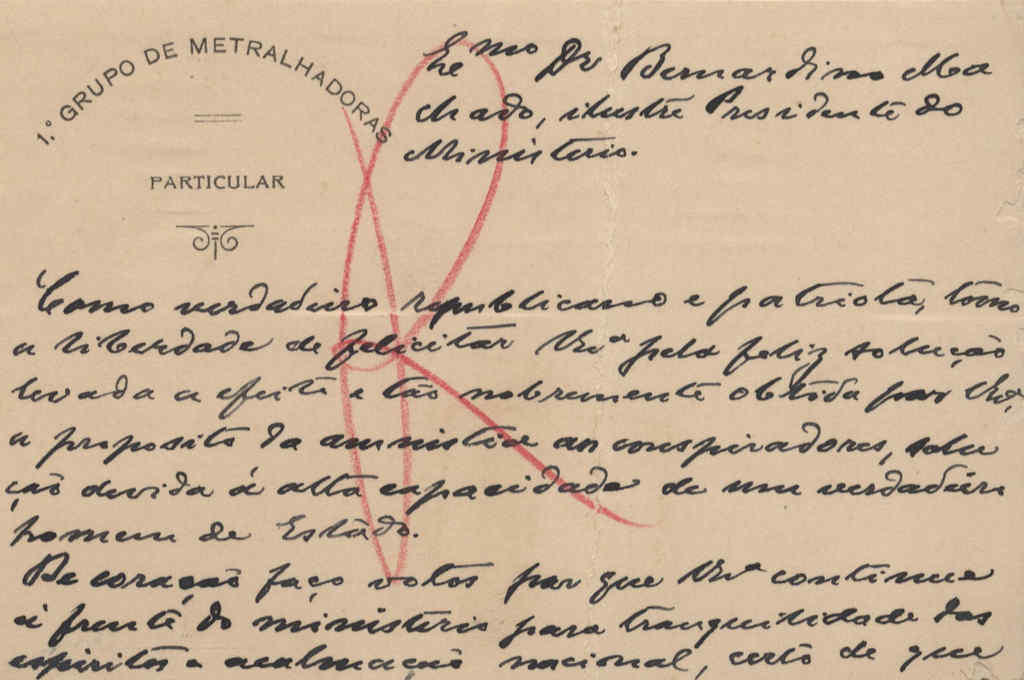 1.º GRUPO DE METRALHADORAS
PARTICULAR
Exmo Dr Bernardino Ma
chado, ilustre Presidente do
Ministerio.
Como verdadeiro republicano e patriota, tomo
a liberdade de felicitar V.Exa pela feliz solução
levada a efeito e tão nobremente obtida por V.Exa,
a proposito da amnistia aos conspiradores, solu
ção devida á alta capacidade de um verdadeiro
homem de Estado.
De coração faço votos por que V.Exa continue
á frente do ministerio para tranquilidade dos
espiritos e acalmação nacional, certo de que